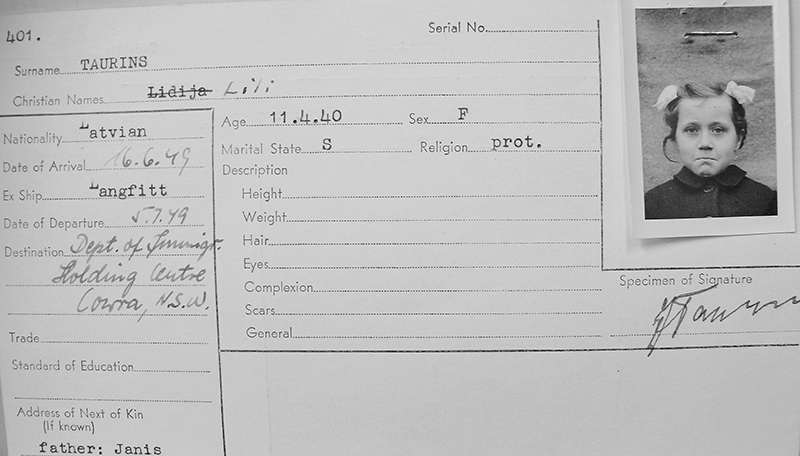 401.
Serial No.
Surname TAURINS
Christian Names Lidija Lili
Nationality Latvian
Date of Arrival 16.6.49
Ex Ship Langfitt
Date of Departure 5.7.49
Destination Dept. of Immigr.
Holding Centre
Cowra, N.S.W.
Trade
Standard of Education
Address of Next of Kin
(If known)
father: Janis
Age 11.4.40 Sex F
Marital State S Religion prot.
Description
Height
Weight
Hair
Eyes
Complexion
Scars
General
Specimen of Signature
Taurins